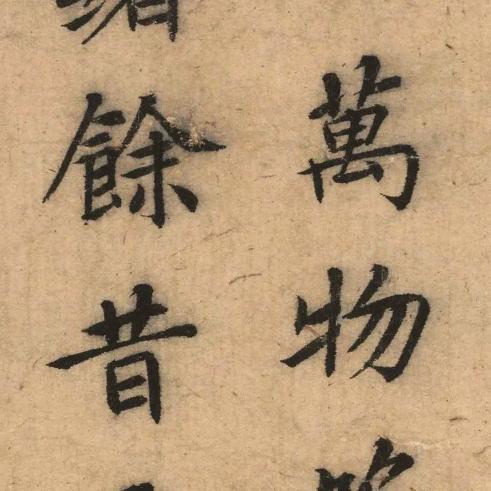 萬物
緒餘昔